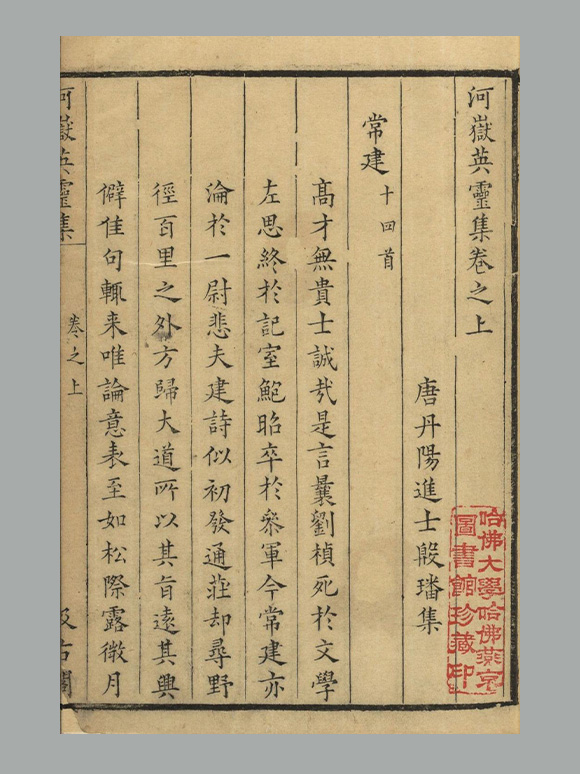 河嶽英靈集卷之上
唐丹陽進士殷璠集
常建十四首
髙才無貴士誠㢤是言曩劉楨死於文學
左思終於記室鮑昭卒於叅軍今常建亦
淪於一尉悲夫建詩似初發通莊却尋野
徑百里之外方歸大道所以其旨遠其興
僻佳句輒来唯論意表至如松際露微月
河嶽英靈集
卷之上
汲古閣
哈佛大學哈佛燕京
圖書館珍藏印